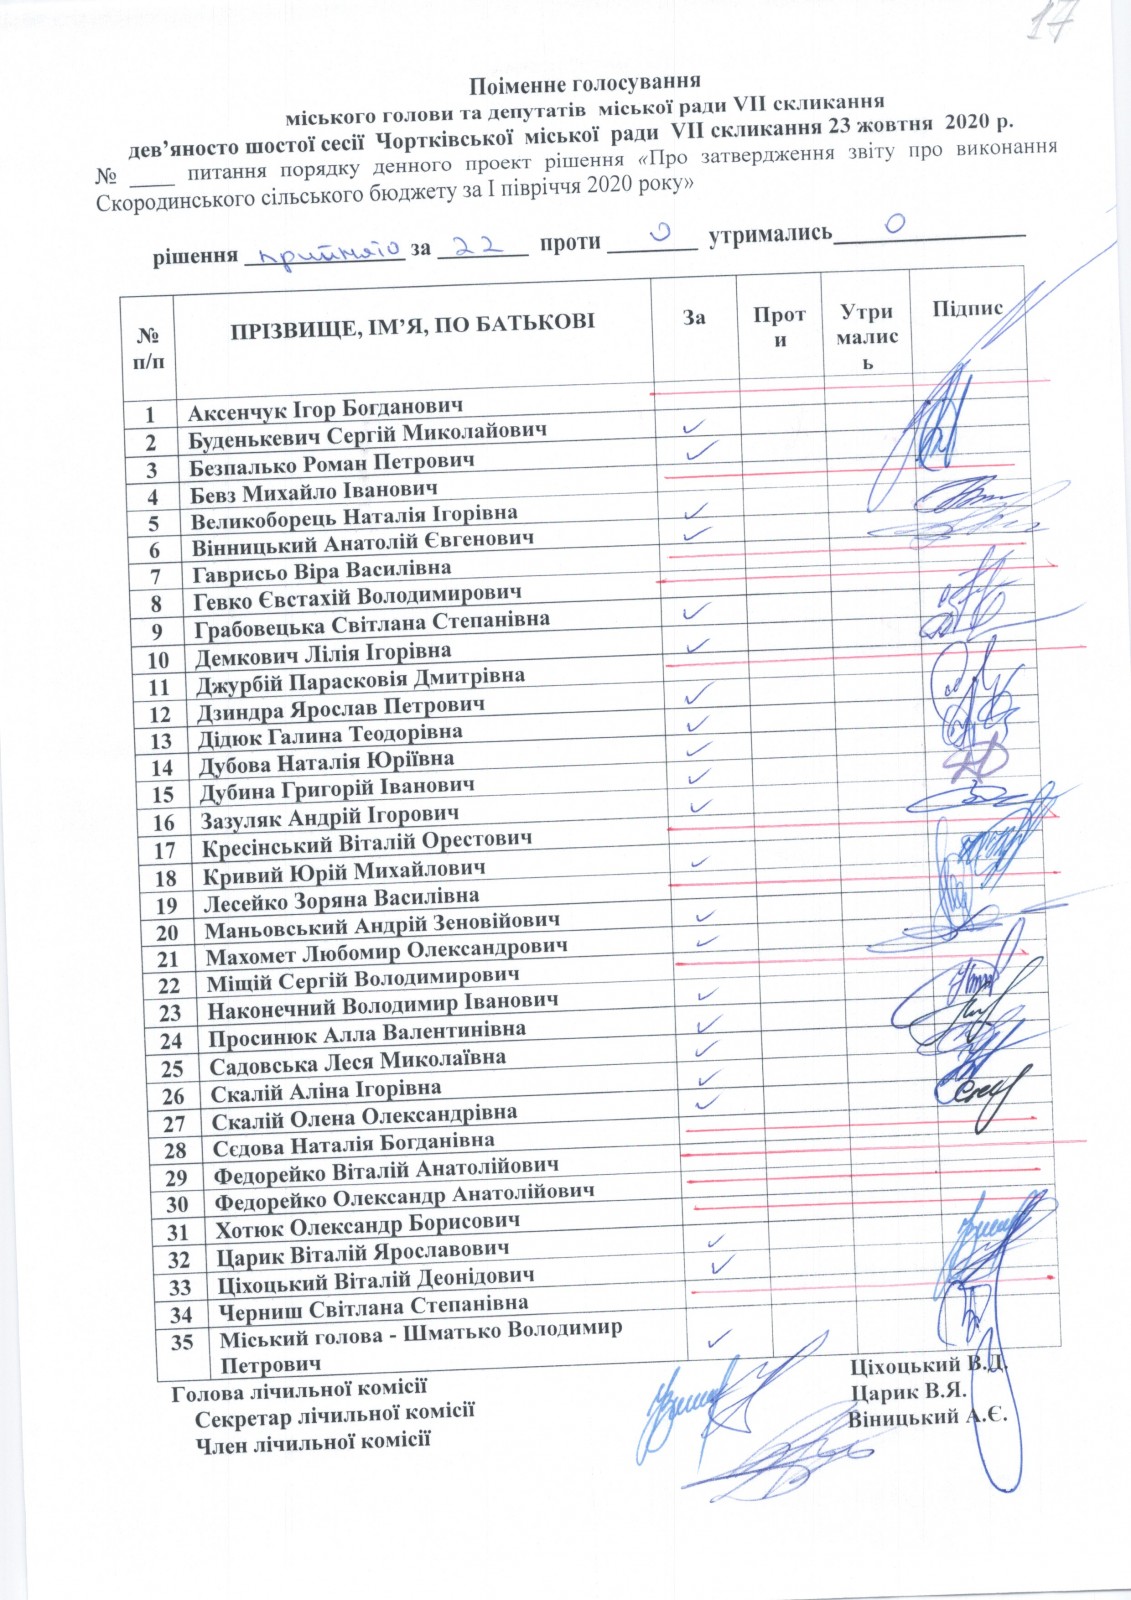 17
Поіменне голосування
міського голови та депутатів міської ради VII скликання
дев’яносто шостої сесії Чортківської міської ради VII скликання 23 жовтня 2020 р.
№ ____ питання порядку денного проект рішення «Про затвердження звіту про виконання
Скородинського сільського бюджету за І півріччя 2020 року»
рішення прийнято за 22 проти 0 утримались 0
№ п/п ПРІЗВИЩЕ, ІМ’Я, ПО БАТЬКОВІ За Проти Утрималис ь Підпис
1 Аксенчук Ігор Богданович
2 Буденькевич Сергій Миколайович ✓
3 Безпалько Роман Петрович ✓
4 Бевз Михайло Іванович
5 Великоборець Наталія Ігорівна ✓
6 Вінницький Анатолій Євгенович ✓
7 Гаврисьо Віра Василівна
8 Гевко Євстахій Володимирович
9 Грабовецька Світлана Степанівна ✓
10 Демкович Лілія Ігорівна ✓
11 Джурбій Парасковія Дмитрівна
12 Дзиндра Ярослав Петрович ✓
13 Дідюк Галина Теодорівна ✓
14 Дубова Наталія Юріївна ✓
15 Дубина Григорій Іванович ✓
16 Зазуляк Андрій Ігорович ✓
17 Кресінський Віталій Орестович
18 Кривий Юрій Михайлович ✓
19 Лесейко Зоряна Василівна
20 Маньовський Андрій Зеновійович ✓
21 Махомет Любомир Олександрович ✓
22 Міщій Сергій Володимирович
23 Наконечний Володимир Іванович ✓
24 Просинюк Алла Валентинівна ✓
25 Садовська Леся Миколаївна ✓
26 Скалій Аліна Ігорівна ✓
27 Скалій Олена Олександрівна ✓
28 Сєдова Наталія Богданівна
29 Федорейко Віталій Анатолійович
30 Федорейко Олександр Анатолійович
31 Хотюк Олександр Борисович
32 Царик Віталій Ярославович ✓
33 Ціхоцький Віталій Деонідович ✓
34 Черниш Світлана Степанівна
35 Міський голова - Шматько Володимир
Петрович ✓
Голова лічильної комісії Ціхоцький В.Д.
Секретар лічильної комісії Царик В.Я.
Член лічильної комісії Віницький А.Є.